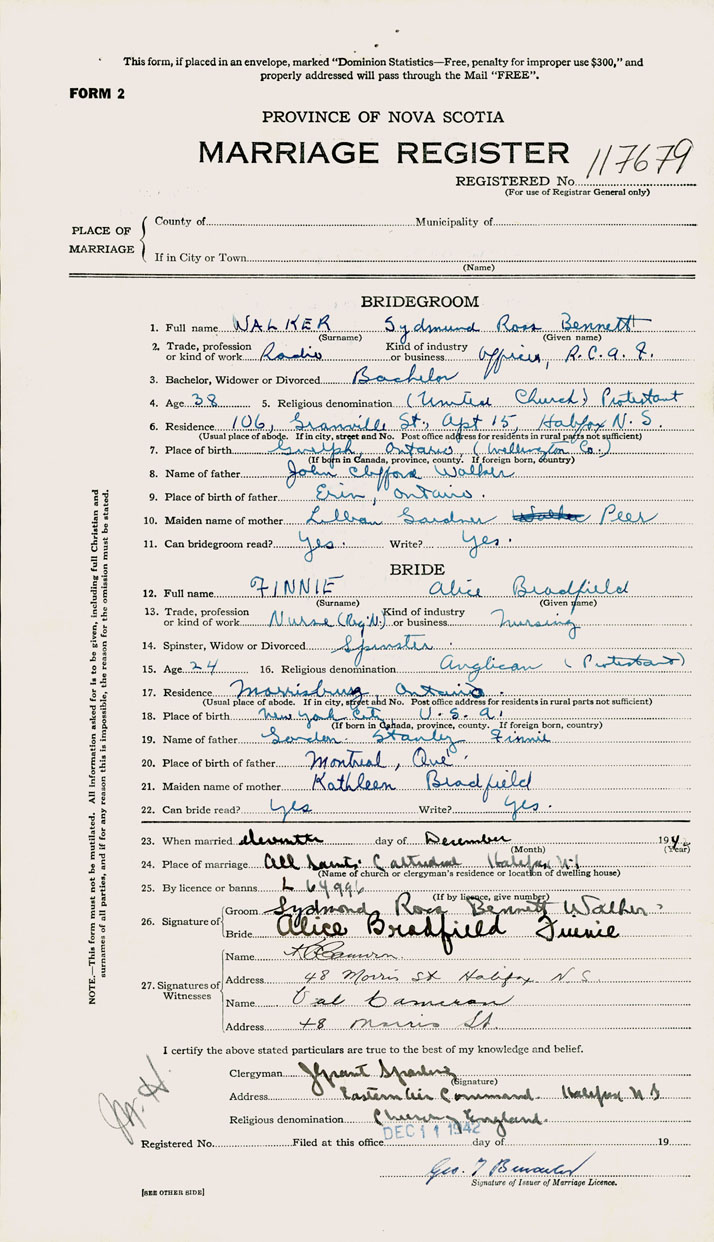 This form, if placed in an envelope, marked "Dominion Statistics—Free, penalty for improper use $300," and
properly addressed will pass through the Mail "FREE".
FORM 2
PROVINCE OF NOVA SCOTIA
MARRIAGE REGISTER
117679
REGISTERED No.
(For use of Registrar General only)
PLACE OF MARRIAGE
County of Municipality of
If in City or Town
(Name)
BRIDEGROOM
1. Full name WALKER Sydmund Ross Bennett
(Surname) (Given name)
2. Trade, profession or kind of work Radio Kind of industry or business Officer, R.C.A.F.
3. Bachelor, Widower or Divorced Bachelor
4. Age 38 5. Religious denomination (United Church) Protestant
6. Residence 106, Granville St., Apt 15, Halifax N.S.
(Usual place of abode. If in city, street and No. Post office address for residents in rural parts not sufficient)
7. Place of birth Guelph, Ontario, (Wellington Co.)
(If born in Canada, province, county. If foreign born, country)
8. Name of father John Clifford Walker
9. Place of birth of father Erin, Ontario.
10. Maiden name of mother Lillian Gardner Peer
11. Can bridegroom read? Yes. Write? Yes.
BRIDE
12. Full name FINNIE Alice Bradfield
(Surname) (Given name)
13. Trade, profession or kind of work Nurse (Reg. N.) Kind of industry or business Nursing
14. Spinster, Widow or Divorced Spinster.
15. Age 24 16. Religious denomination Anglican (Protestant)
17. Residence Morrisburg, Ontario.
(Usual place of abode. If in city, street and No. Post office address for residents in rural parts not sufficient)
18. Place of birth New York City U.S.A.
(If born in Canada, province, county. If foreign born, country)
19. Name of father Gordon Stanley Finnie
20. Place of birth of father Montreal, Que.
21. Maiden name of mother Kathleen Bradfield
22. Can bride read? Yes Write? Yes.
23. When married eleventh day of December 194
(Month) (Year)
24. Place of marriage All Saints Cathedral Halifax N.S.
(Name of church or clergyman's residence or location of dwelling house)
25. By licence or banns L 64996
(If by licence, give number)
26. Signature of
Groom Sydmund Ross Bennett Walker
Bride Alice Bradfield Finnie
27. Signatures of Witnesses
Name
Address 48 Morris St Halifax N.S.
Name Val Cameron
Address 48 Morris St.
I certify the above stated particulars are true to the best of my knowledge and belief.
Clergyman
(Signature)
Address Eastern Air Command Halifax N S
Religious denomination Church England.
DEC 11 1942
Registered No. Filed at this office day of 19
Geo. T
Signature of Issuer of Marriage Licence.
[SEE OTHER SIDE]
NOTE.—This form must not be mutilated. All information asked for is to be given, including full Christian and
surnames of all parties, and if for any reason this is impossible, the reason for the omission must be stated.